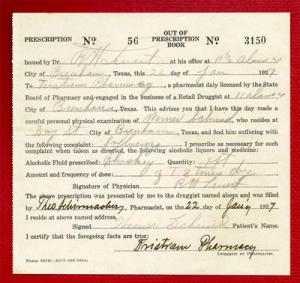 PRESCRIPTION No 56 OUT OF PRESCRIPTION BOOK No 3150
Issued by Dr. at his office at
City of Brenham, Texas, this 22 day of Jan 1927
To Tristram Pharmacy, a pharmacist duly licensed by the State
Board of Pharmacy and engaged in the business of a Retail Druggist at
City of Brenham, Texas. This advises you that I have this day made a
careful personal physical examination of Werner Schmid, who resides
at Day St City of Brenham, Texas, and find him suffering with
the following complaint: I prescribe as necessary for such
complaint when taken as directed, the following alcoholic liquors and medicine:
Alcoholic Fluid prescribed Whiskey Quantity
Amount and frequency of dose 3 times day
Signature of Physician
The above prescription was presented by me to the druggist named above and was filled by
Pharmacist, on the 22 day of Jany 1927
I reside at above address given.
Signed Werner Patient's Name.
I certify that the foregoing facts are true:
Tristram Pharmacy
Druggist or Pharmacist.